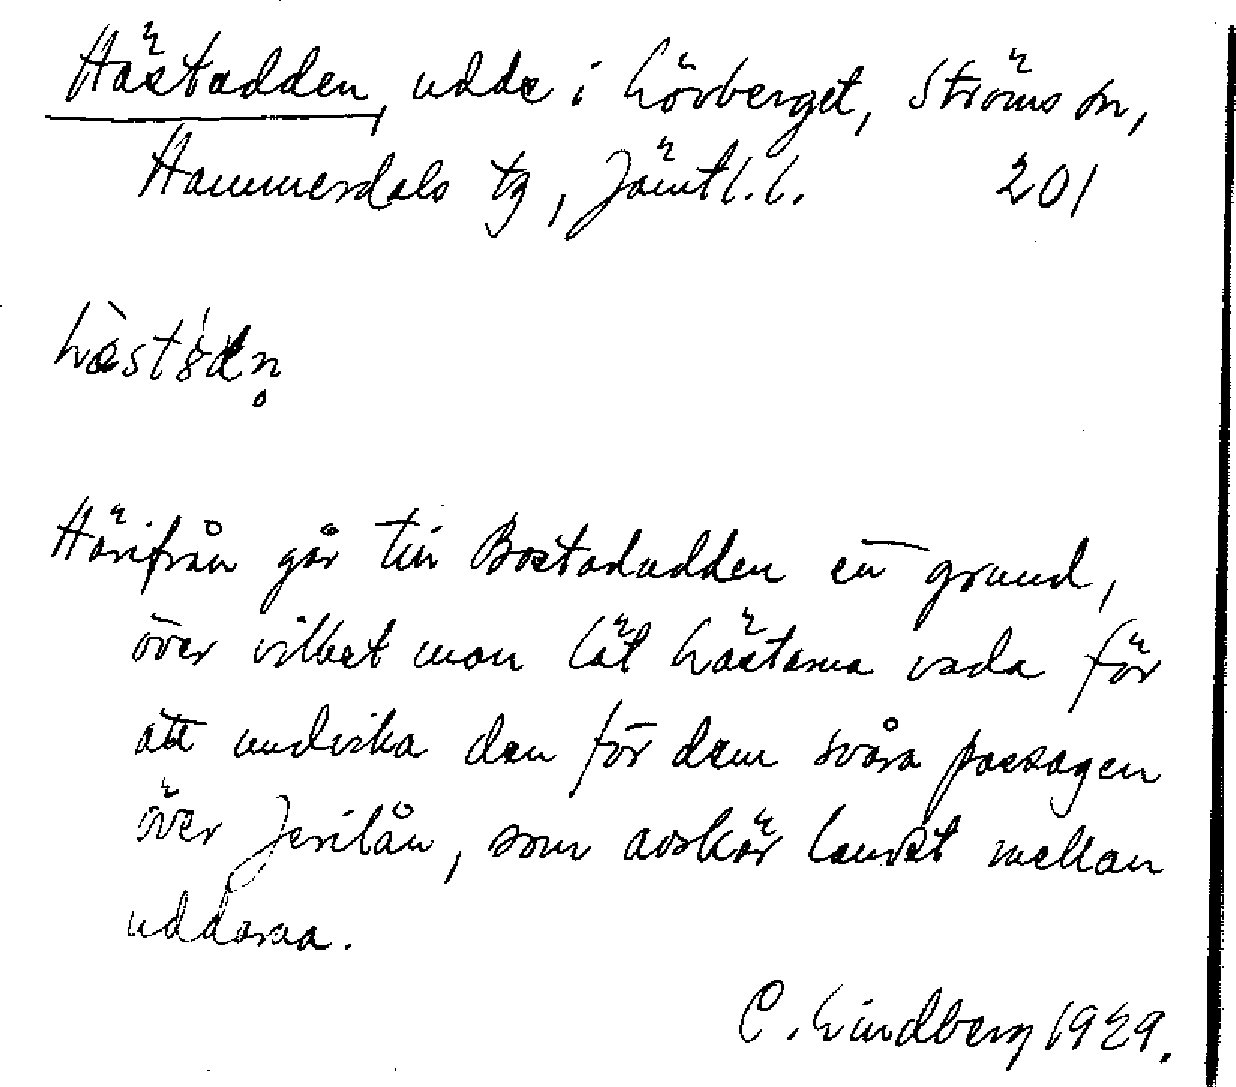 Hästudden, udde i Lövberget, Ströms sn,
Hammerdals tg, Jämtl. l. 201
Härifrån går till Bostadudden en grund,
över vilket man lät hästarna vada för
att undvika den för dem svåra passagen
över Jerilån, som avskär landet mellan
uddarna.
C. Lindberg 1929.